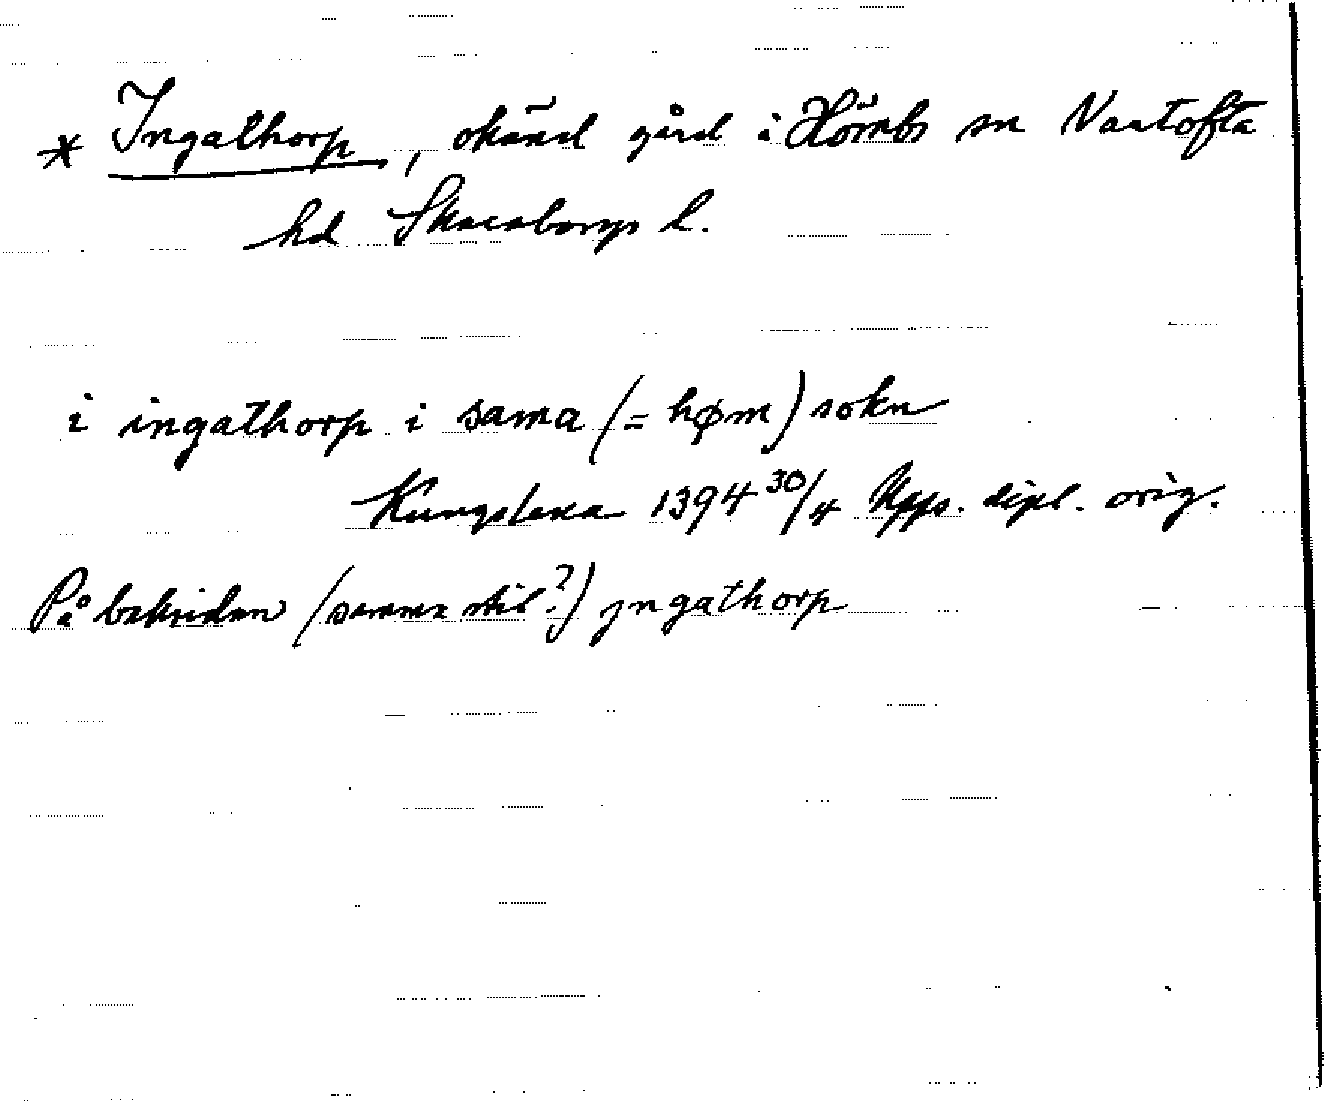 * Ingathorp, okänd gård i Hömbs sn Vartofta
hd Skaraborgs l.
i ingathorp i sama (= høm) sokn
Kungslena 1394 30/4 Upps. dipl. orig.
På baksidan (samma stil?) jngathorp